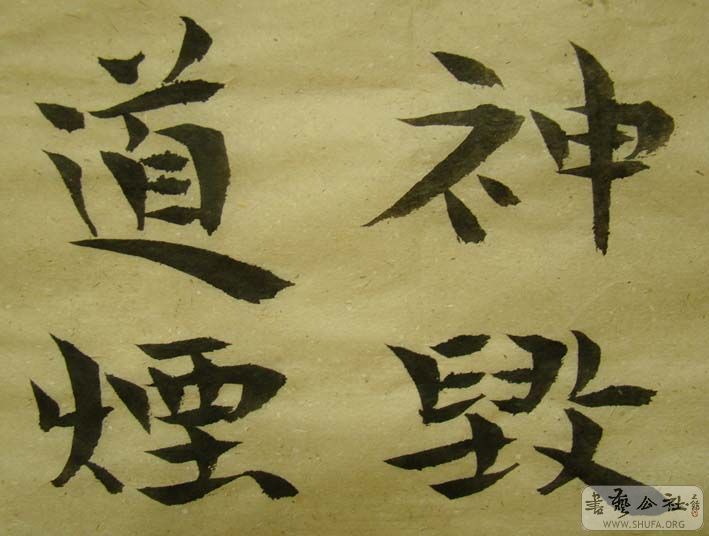 神毀
道煙
書藝公社
WWW.SHUFA.ORG